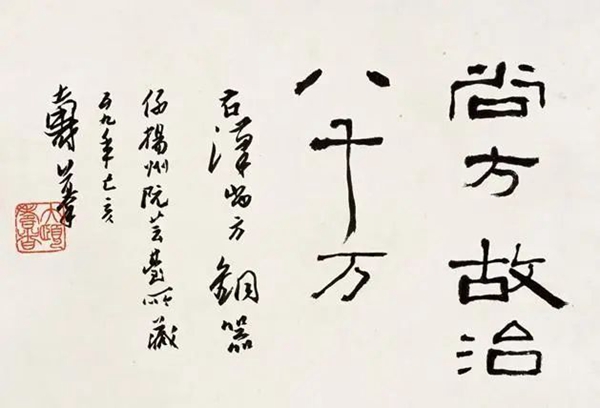 尚方故治
八千万
右漢尚方銅器
仔揚州阮芸臺所藏
五九年己亥
壽